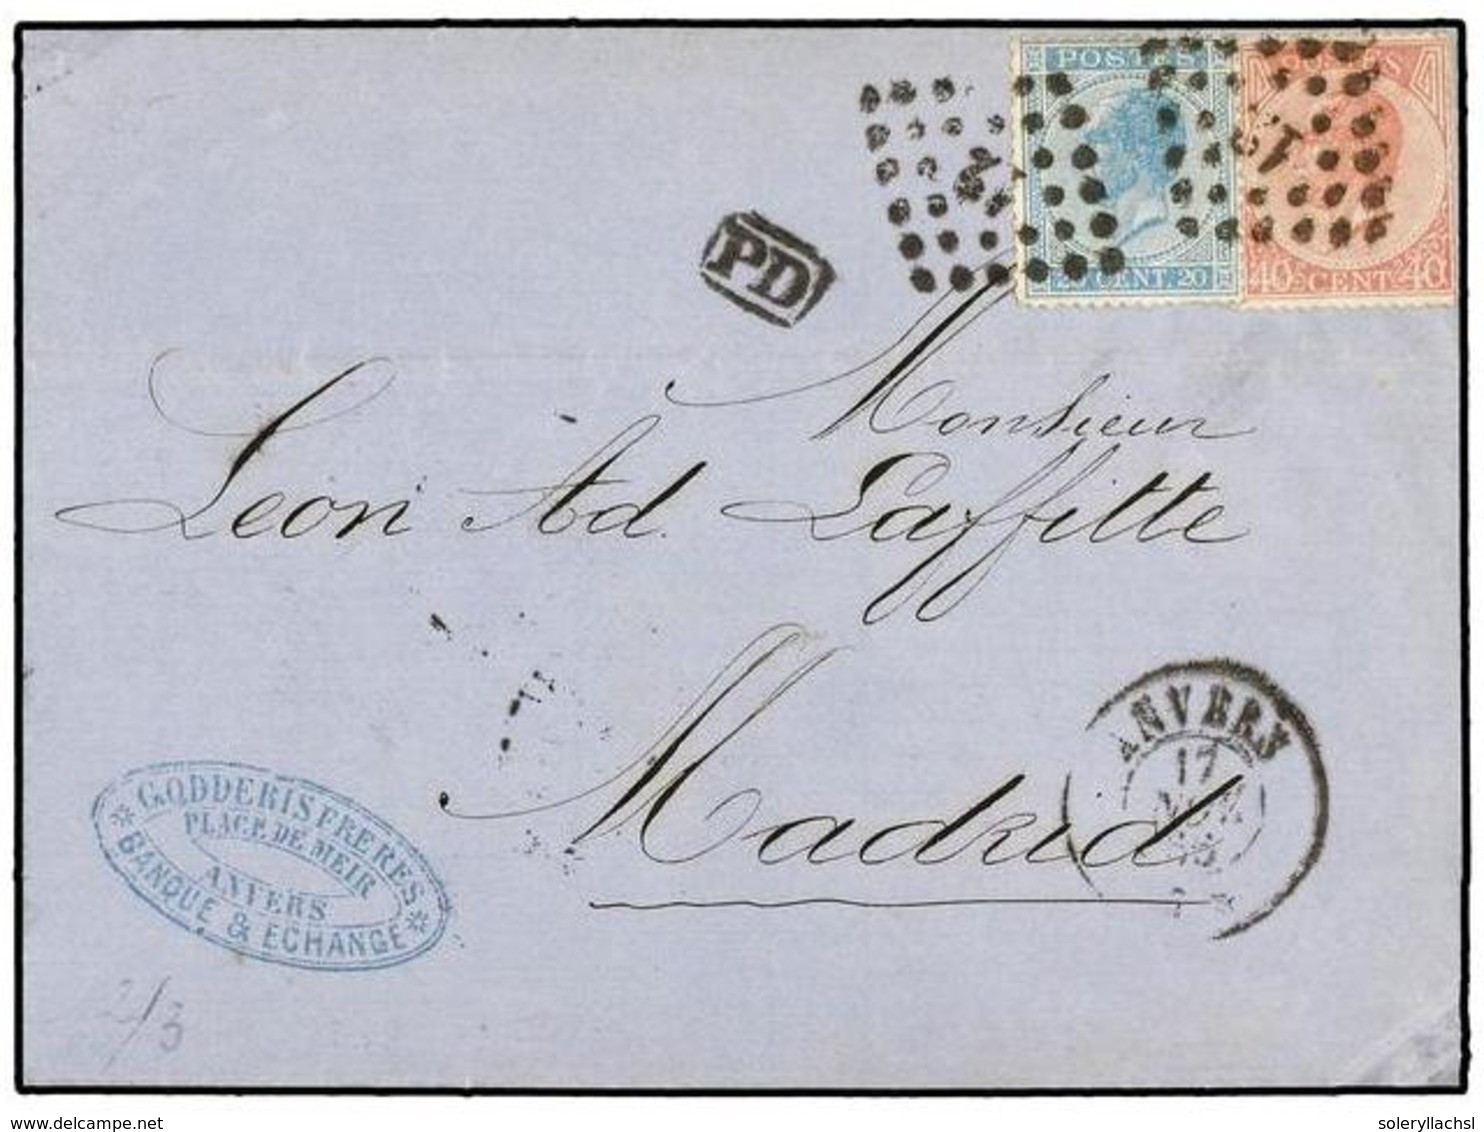 POSTES
20 CENT. 20
40 CENT 40
12
PD
Monsieur
Leon Ad. Laffitte
Madrid
ANVERS
17
GODDERIS FRERES
PLACE DE MEIR
ANVERS
BANQUE & ECHANGE
2/3
soleryllachsl